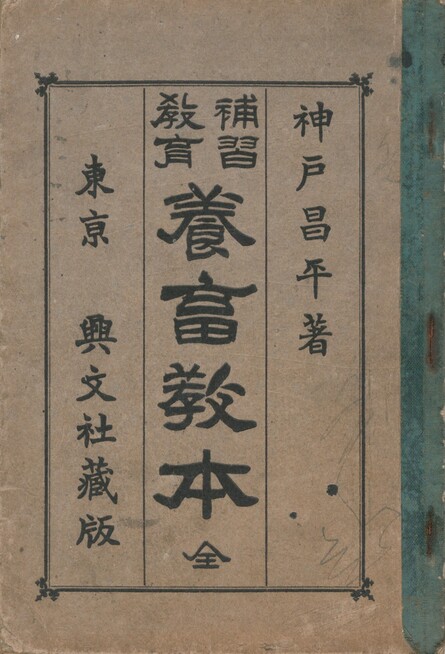 神戸昌平著
補習
教育
養畜教本 全
東京 興文社藏版